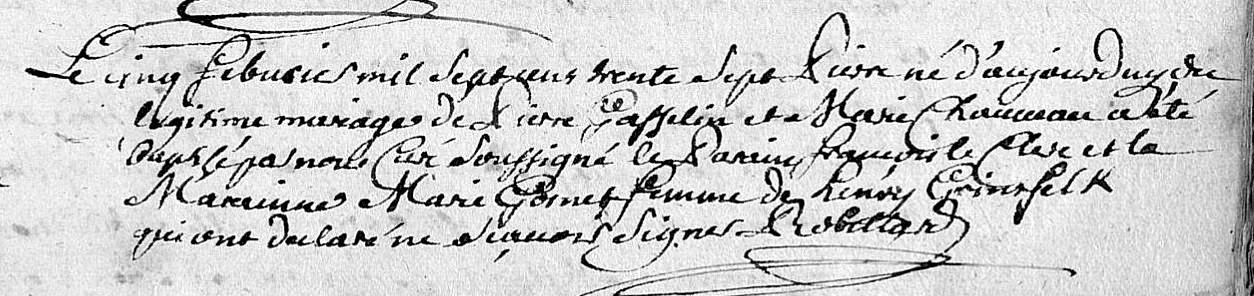 Le cinq febvrier mil sept cens trente sept Pierre né d'aujourduy du
legitime mariage de Pierre Gasselin et Marie Chauveau a été
baptisé par nous Curé soussigné le Parain françois le Clerc et la
Marainne Marie Gomet femme de henry
qui ont declaré ne sçavoir signer Robillard